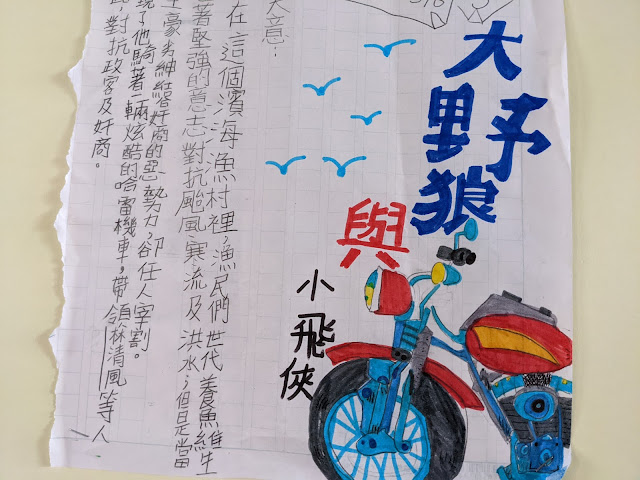 大野狼
與
小飛俠
大意：
在這個濱海漁村裡，漁民們世代養魚維生
著堅強的意志對抗颱風、寒流及洪水；但是當
豪劣紳結奸商的惡勢力，卻任人宰割。
現了他騎著一輛炫酷的哈雷機車，帶領林清風等人
對抗政客及奸商。